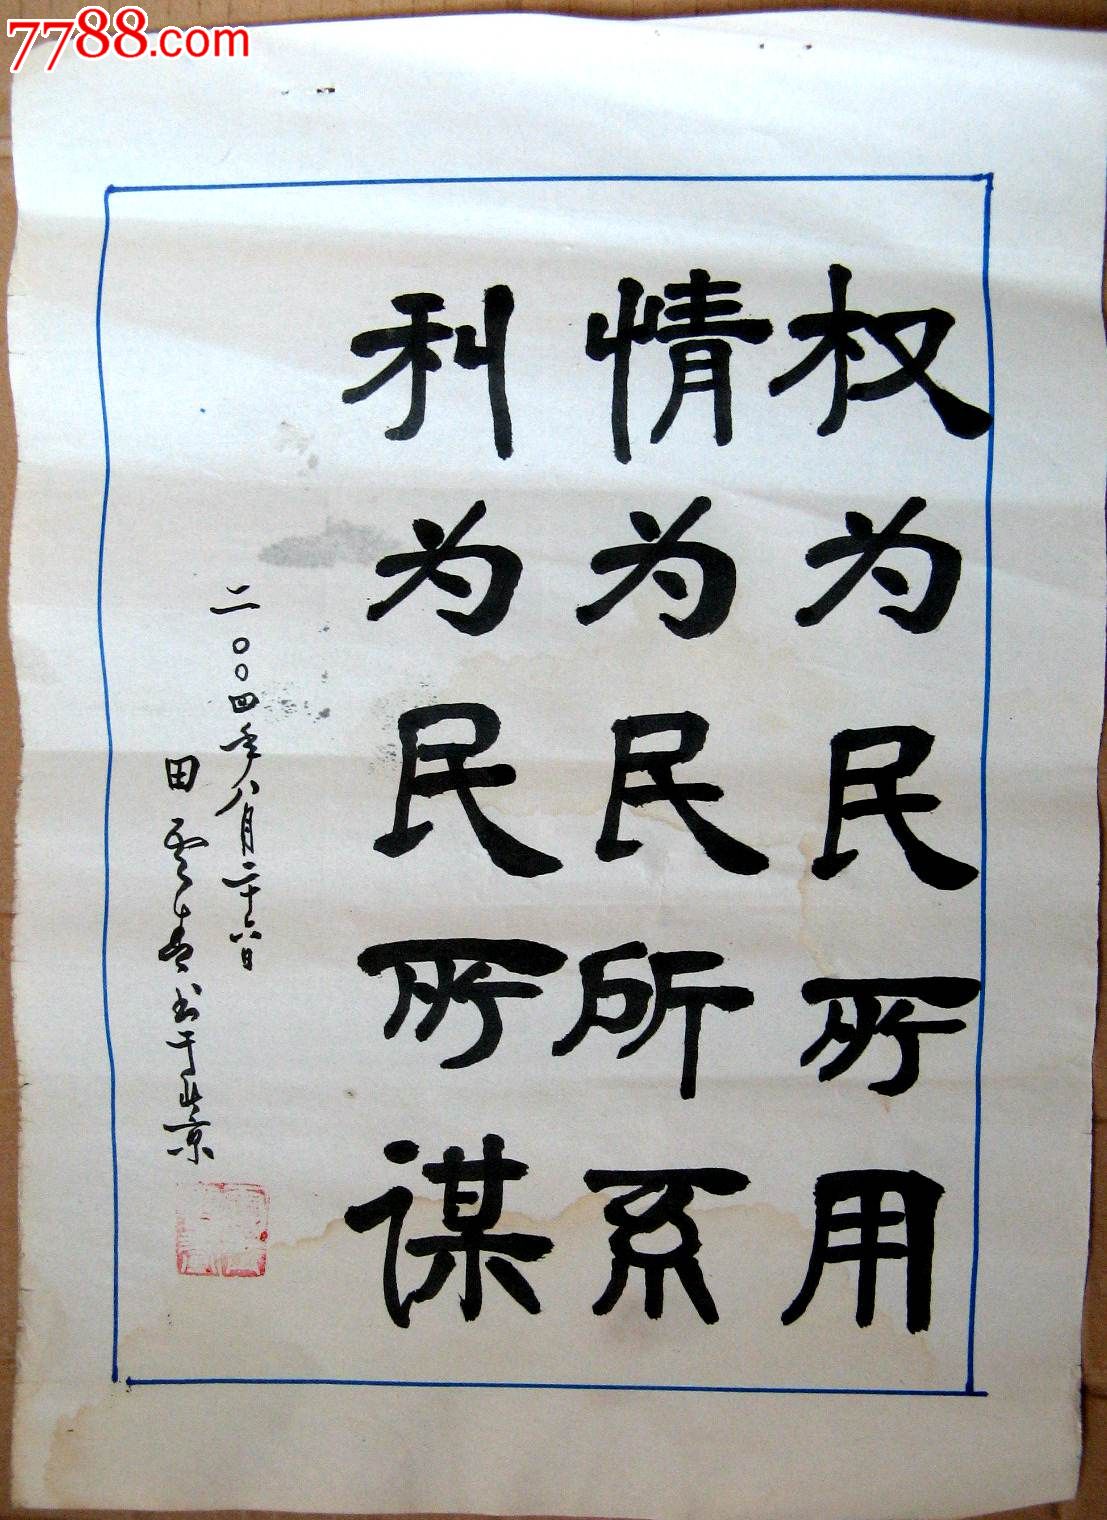 7788.com
权为民所用
情为民所系
利为民所谋
二〇〇四年八月二十六日
田云青书于北京